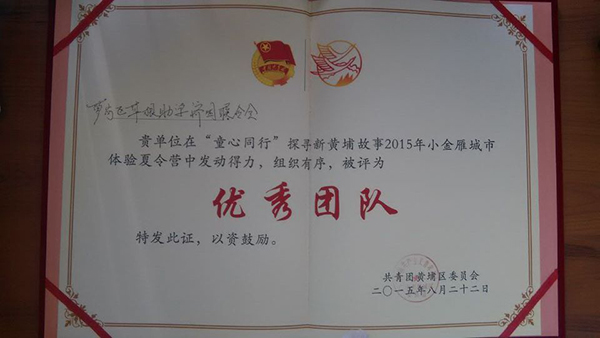 贵单位在“童心同行”探寻新黄埔故事2015年小金雁城市
体验夏令营中发动得力，组织有序，被评为
优秀团队
特发此证，以资鼓励。
共青团黄埔区委员会
二〇一五年八月二十二日